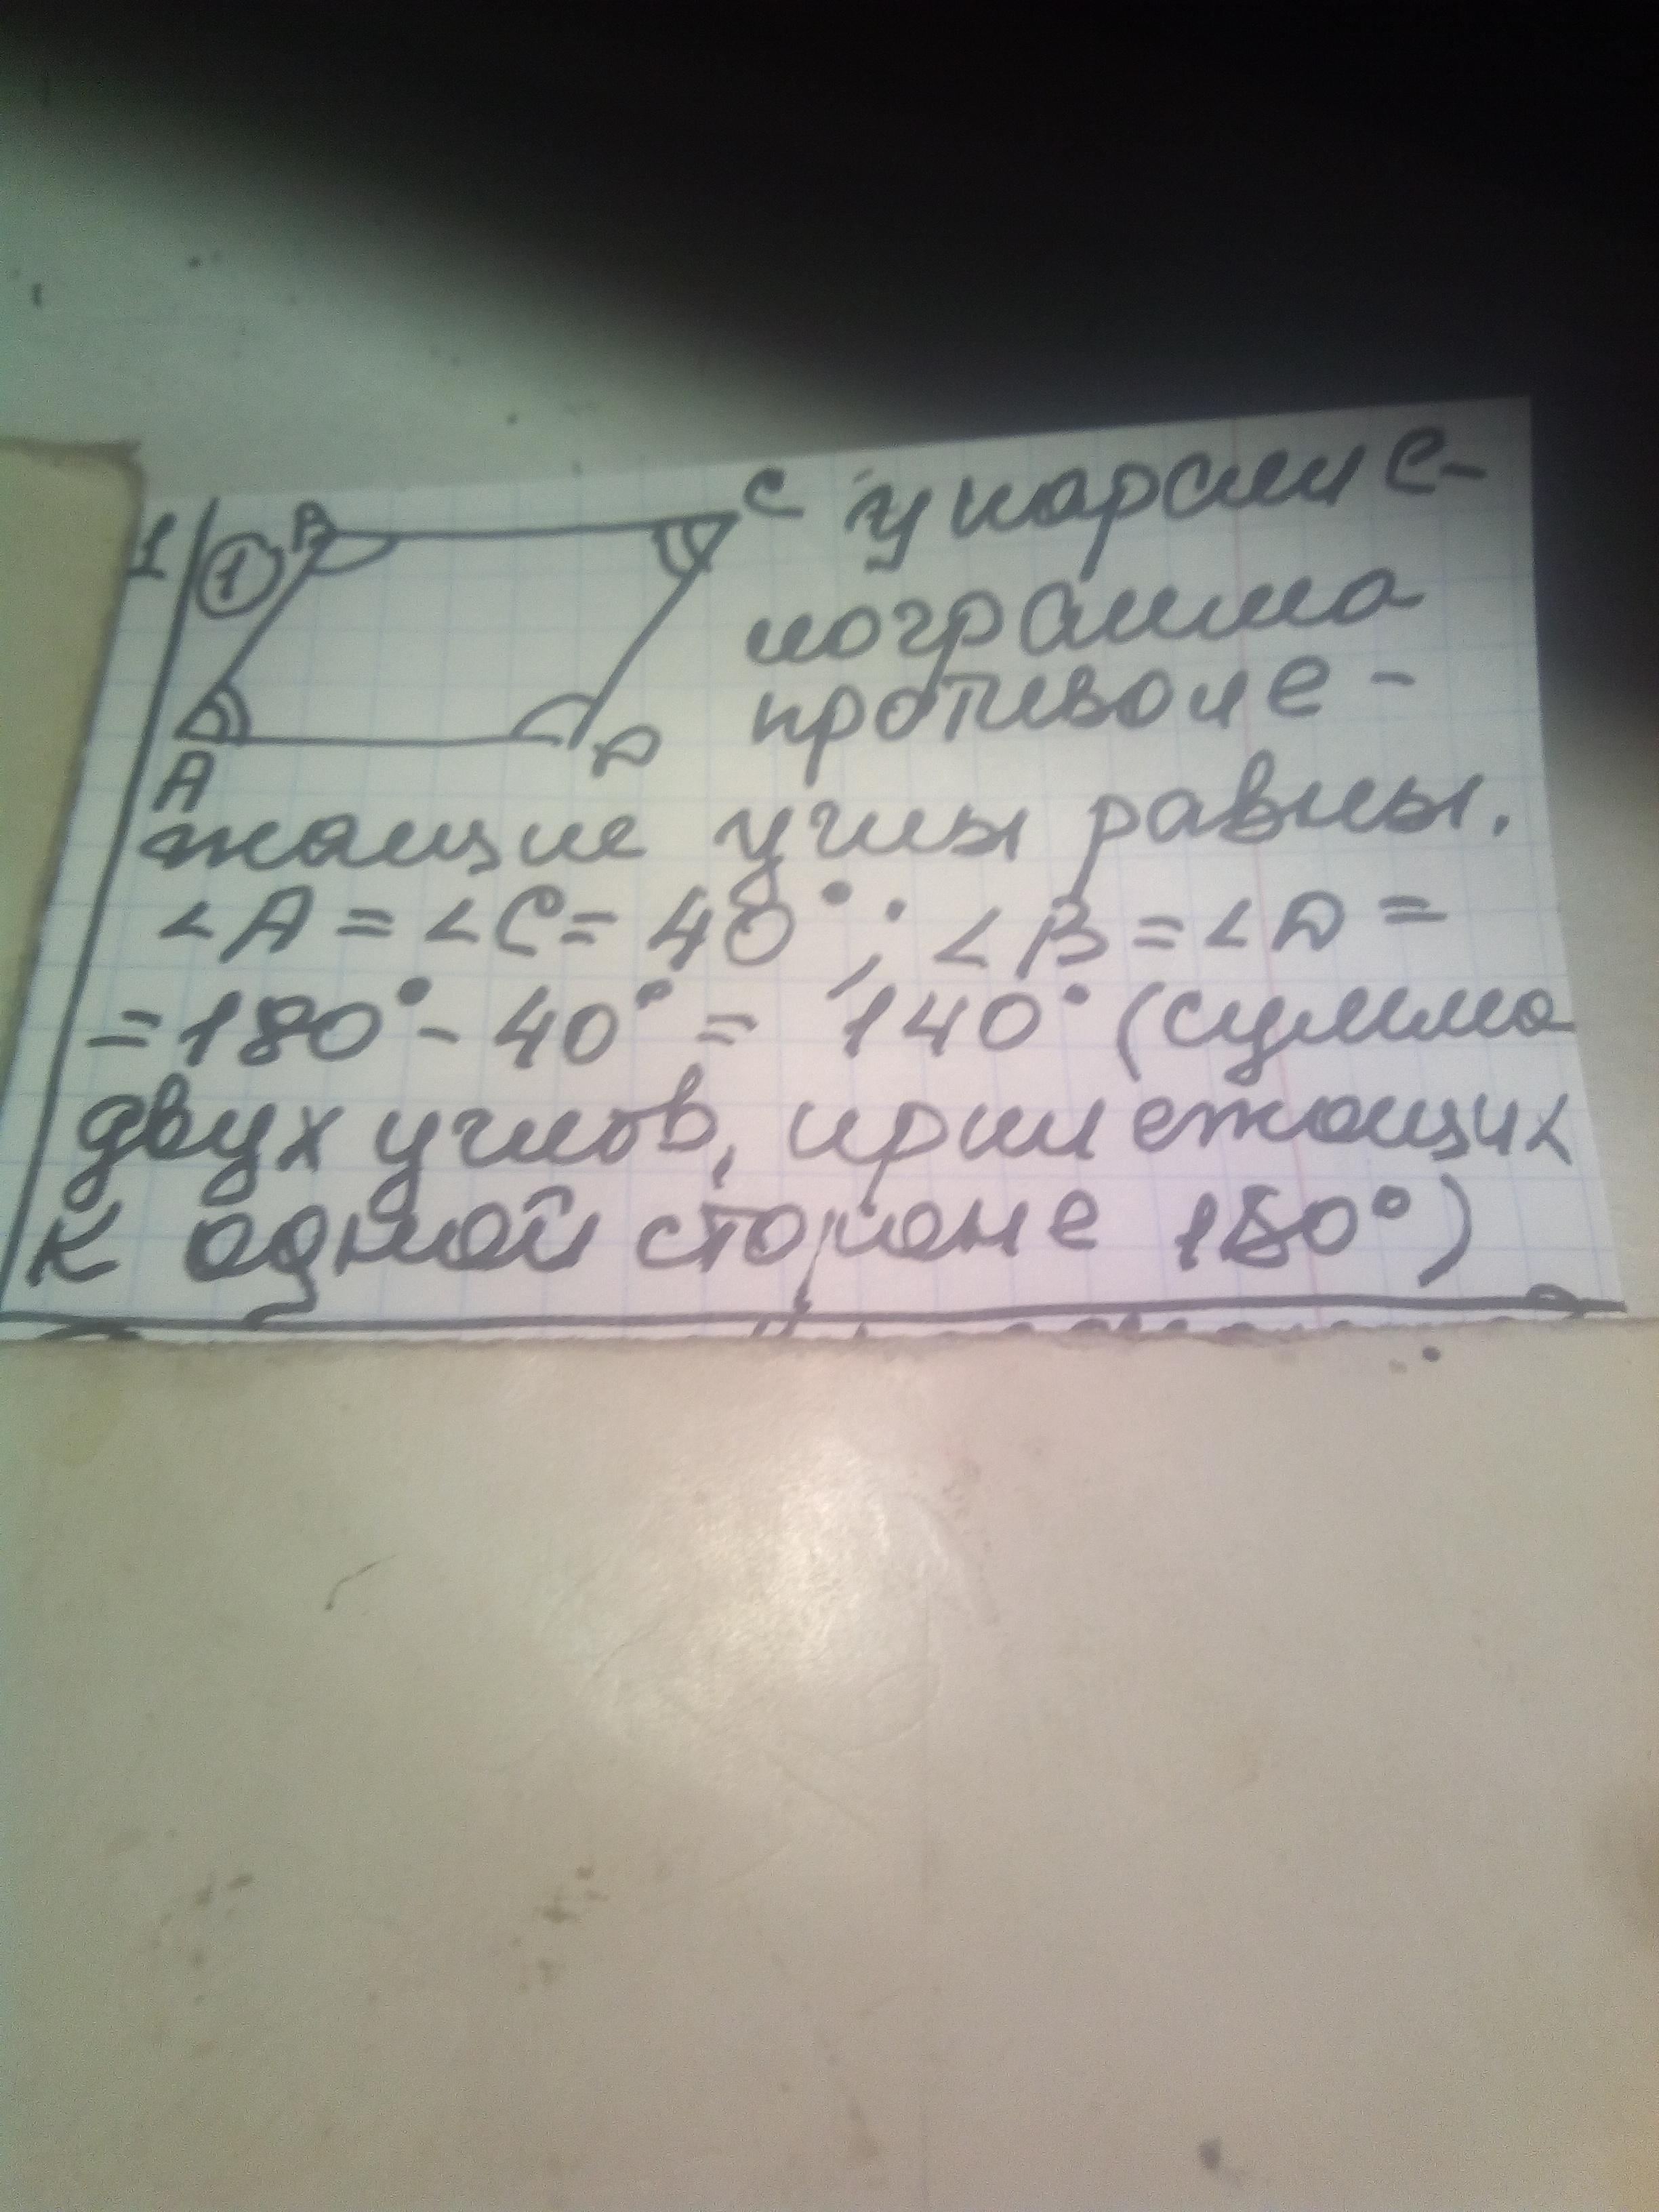 1 ① B C У паралле-
лограмма
противоле-
A D
жащие углы равны.
∠A = ∠C = 40°; ∠B = ∠D =
= 180° - 40° = 140° (сумма
двух углов, прилежащих
к одной стороне 180°)